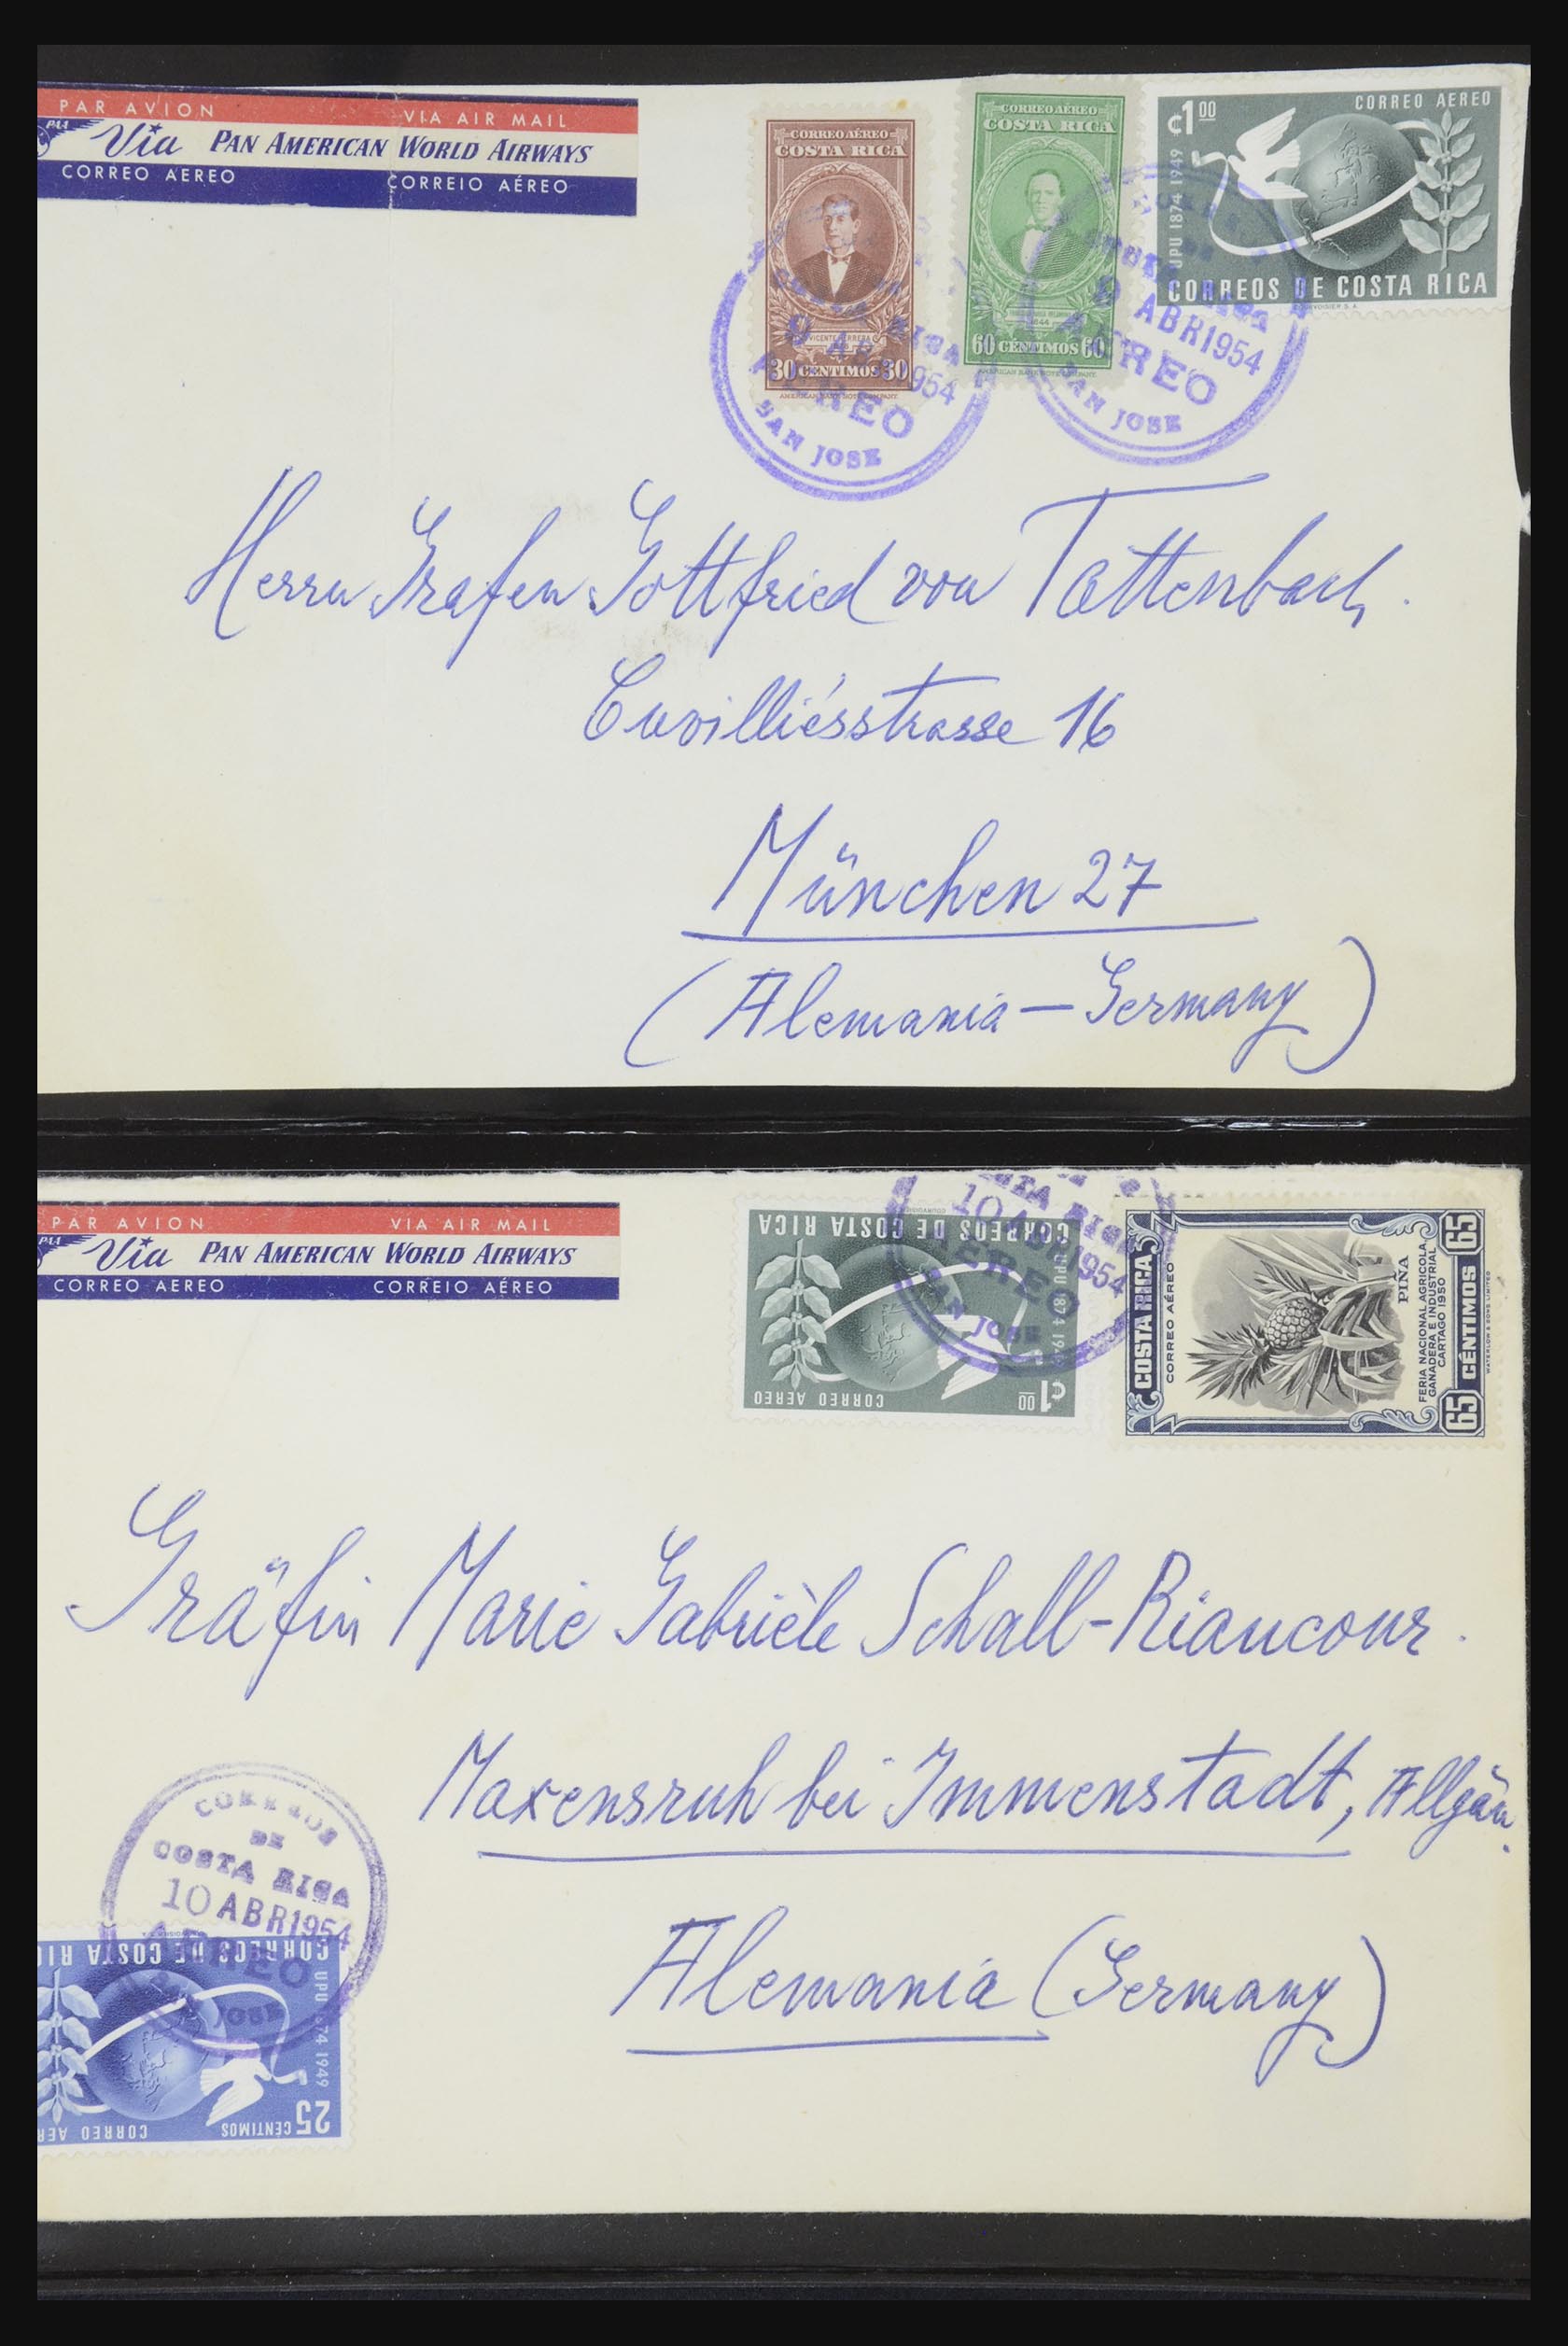 PAR AVION VIA AIR MAIL
PAA Via PAN AMERICAN WORLD AIRWAYS
CORREO AEREO CORREIO AÉREO
CORREO AÉREO
COSTA RICA
VICENTE HERRERA
30 CENTIMOS 30
AMERICAN BANK NOTE COMPANY
CORREO AÉREO
COSTA RICA
1844
60 CENTIMOS 60
₡1.00 CORREO AEREO
UPU 1874 1949
CORREOS DE COSTA RICA
COSTA RICA
9 ABR 1954
AEREO
SAN JOSE
COSTA RICA
9 ABR 1954
AEREO
SAN JOSE
Herrn Grafen Gottfried von Tattenbach.
Cuvilliésstrasse 16
München 27
(Alemania — Germany)
PAR AVION VIA AIR MAIL
PAA Via PAN AMERICAN WORLD AIRWAYS
CORREO AEREO CORREIO AÉREO
CORREOS DE COSTA RICA
UPU 1874 1949
₡1.00 CORREO AEREO
COSTA RICA
10 ABR 1954
AEREO
SAN JOSE
COSTA RICA
CORREO AÉREO
PIÑA
FERIA NACIONAL AGRICOLA
GANADERA E INDUSTRIAL
CARTAGO 1950
65 CÉNTIMOS 65
WATERLOW & SONS LIMITED
Gräfin Marie Gabrièle Schall-Riancour.
Maxensruh bei Immenstadt, Allgäu.
Alemania (Germany)
CORREOS
DE
COSTA RICA
10 ABR 1954
AEREO
SAN JOSE
CORREOS DE COSTA RI
UPU 1874 1949
25 CENTIMOS CORREO AER